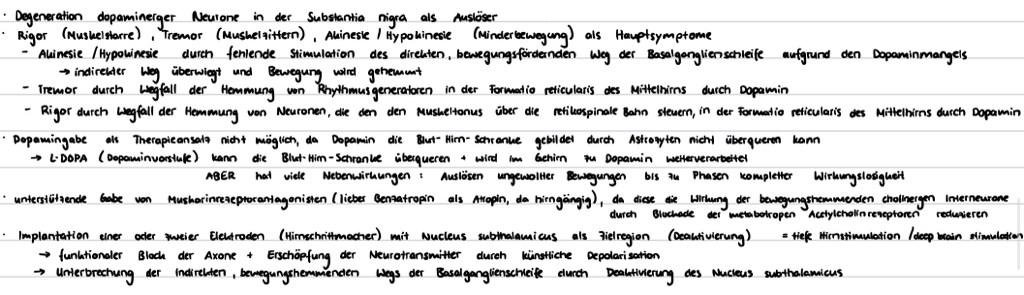 · Degeneration dopaminerger Neurone in der Substantia nigra als Auslöser
· Rigor (Muskelstarre), Tremor (Muskelzittern), Akinesie / Hypokinesie (Minderbewegung) als Hauptsymptome
– Akinesie / Hypokinesie durch fehlende Stimulation des direkten, bewegungsfördernden Weg der Basalganglienschleife aufgrund den Dopaminmangels
→ indirekter Weg überwiegt und Bewegung wird gehemmt
– Tremor durch Wegfall der Hemmung von Rhythmusgeneratoren in der Formatio reticularis des Mittelhirns durch Dopamin
– Rigor durch Wegfall der Hemmung von Neuronen, die den den Muskeltonus über die retikospinale Bahn steuern, in der Formatio reticularis des Mittelhirns durch Dopamin
· Dopamingabe als Therapieansatz nicht möglich, da Dopamin die Blut-Hirn-Schranke gebildet durch Astrozyten nicht überqueren kann
→ L-DOPA (Dopaminvorstufe) kann die Blut-Hirn-Schranke überqueren + wird im Gehirn zu Dopamin weiterverarbeitet
ABER hat viele Nebenwirkungen: Auslösen ungewollter Bewegungen bis zu Phasen kompletter Wirkungslosigkeit
· unterstützende Gabe von Muskarinrezeptorantagonisten (lieber Benzatropin als Atropin, da hirngängig), da diese die Wirkung der bewegungshemmenden cholinergen Interneurone
durch Blockade der metabotropen Acetylcholinrezeptoren reduzieren
· Implantation einer oder zweier Elektroden (Hirnschrittmacher) mit Nucleus subthalamicus als Zielregion (Deaktivierung) = tiefe Hirnstimulation / deep brain stimulation
→ funktionaler Block der Axone + Erschöpfung der Neurotransmitter durch künstliche Depolarisation
→ Unterbrechung der indirekten, bewegungshemmenden Wegs der Basalganglienschleife durch Deaktivierung des Nucleus subthalamicus